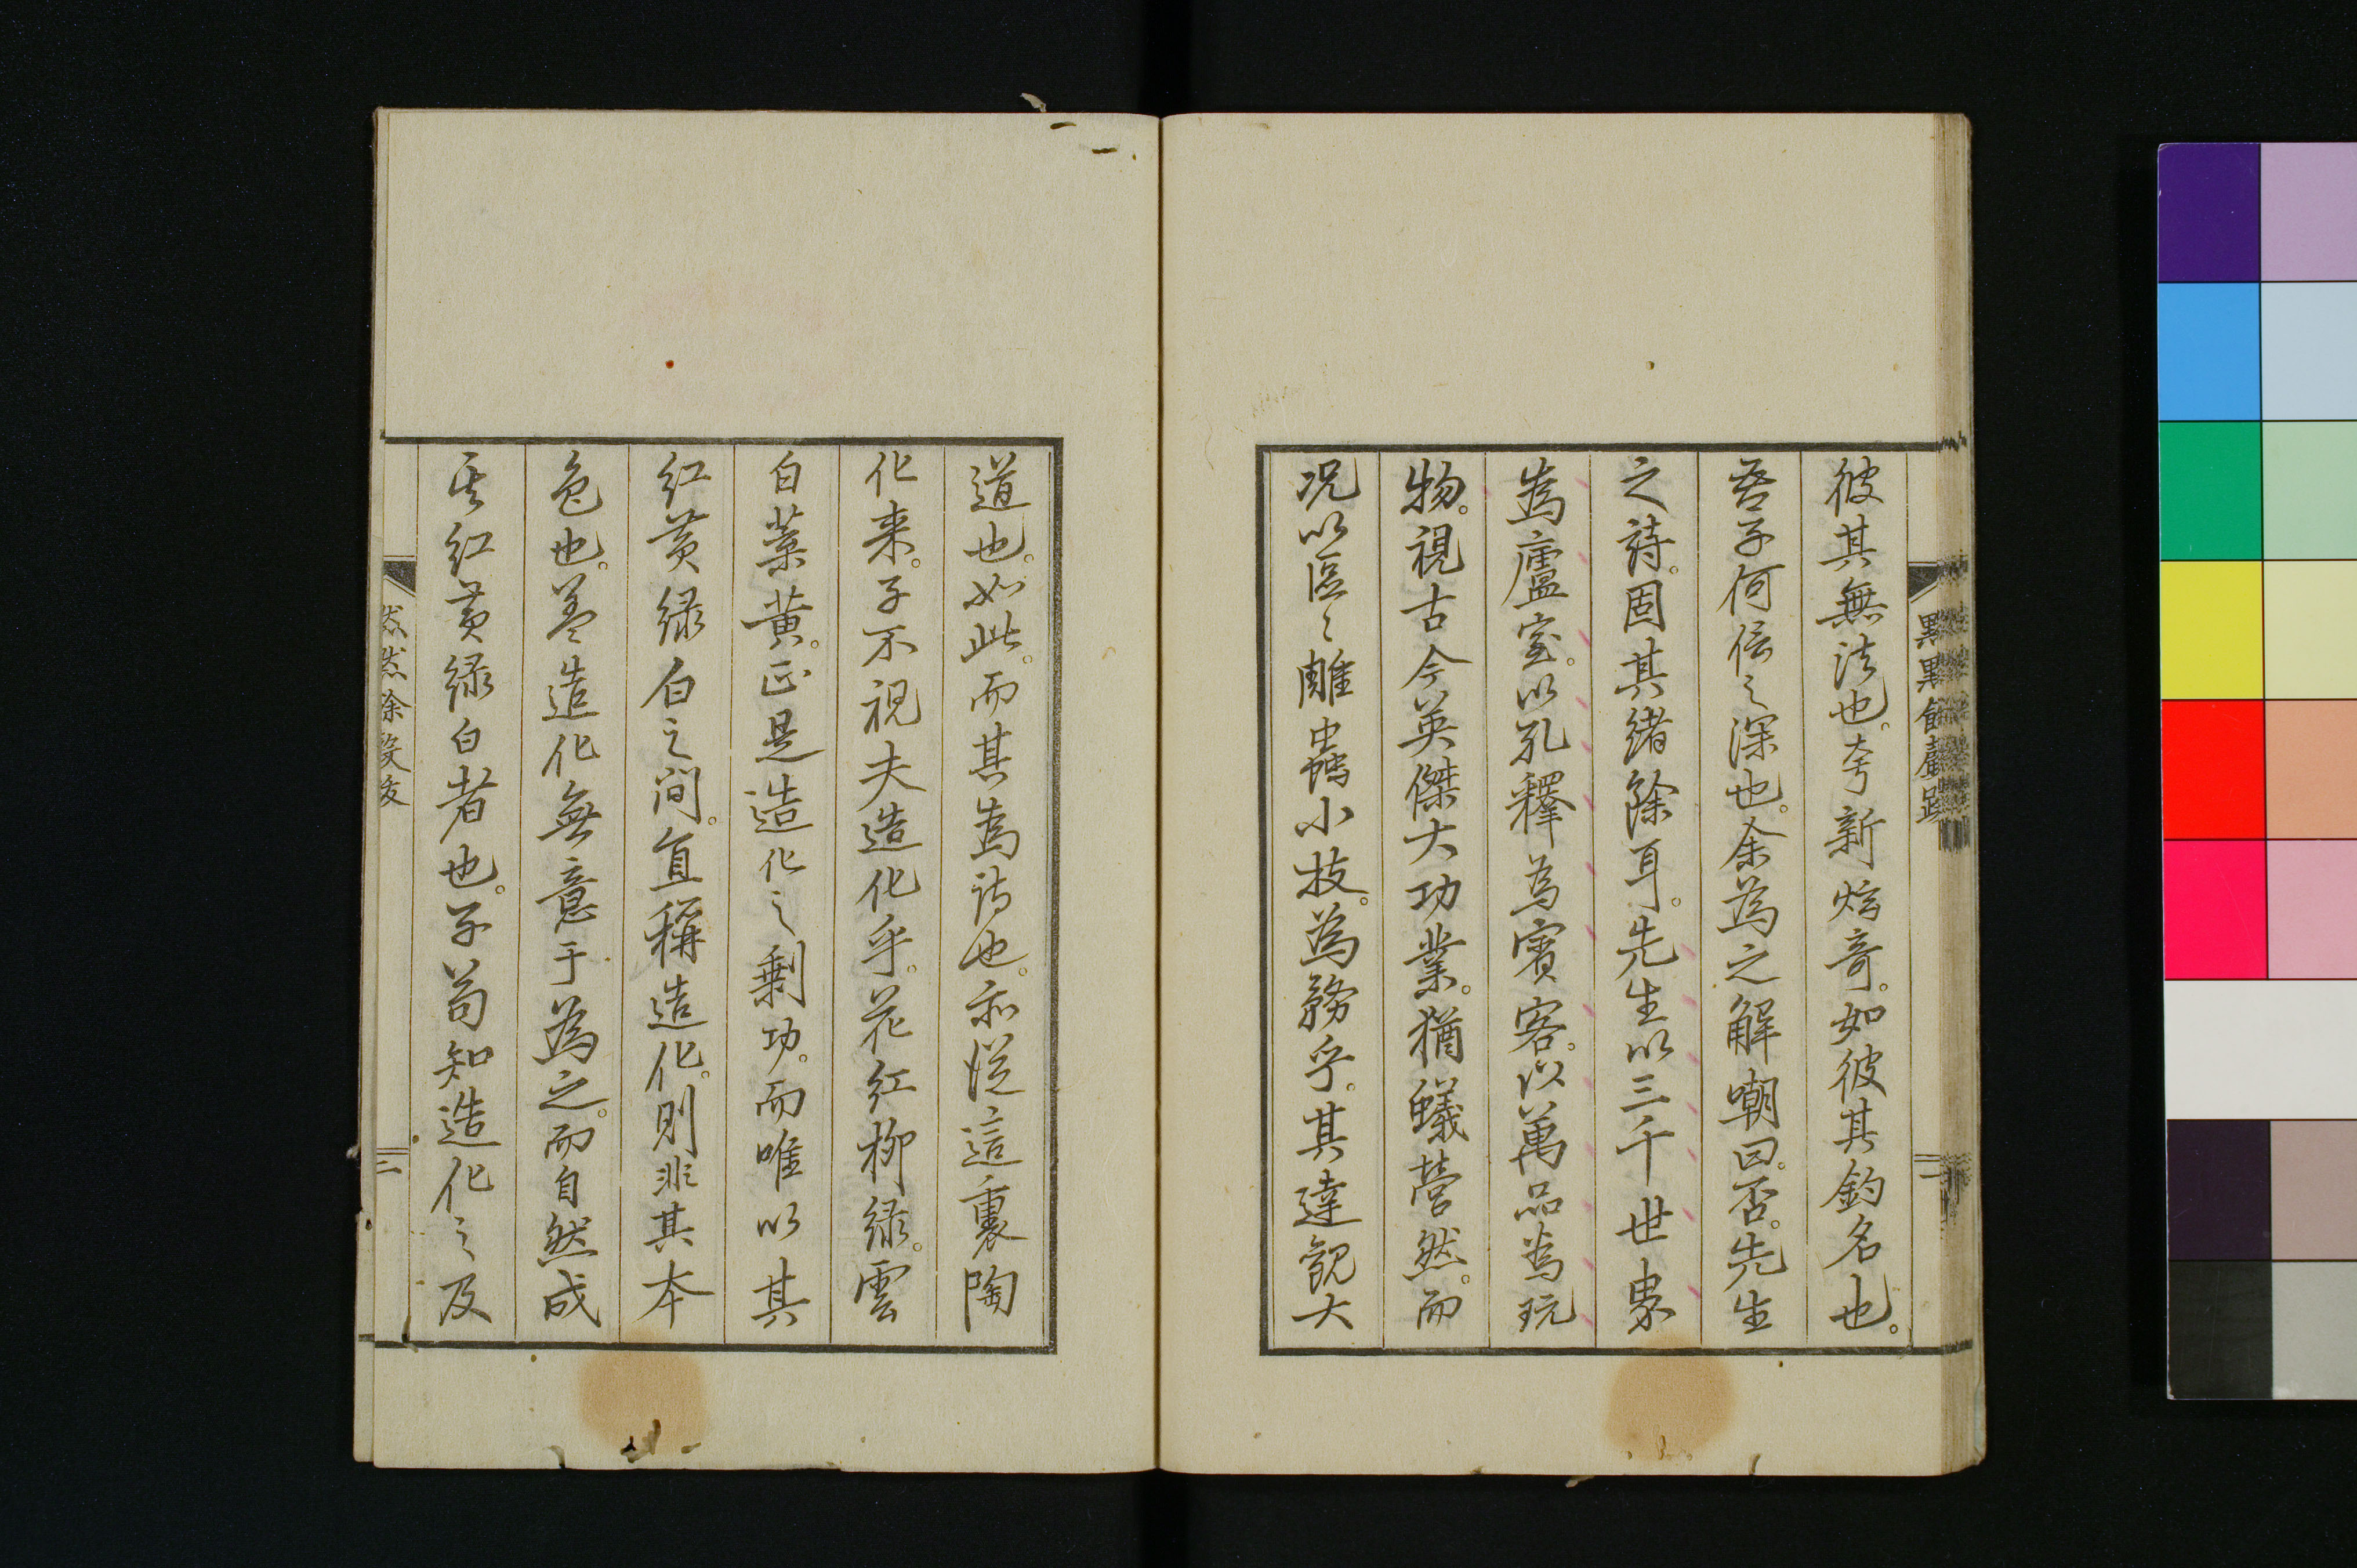 彼其無法也。夸新炫奇。如彼其釣名也。
吾子何信之深也。余為之解嘲曰。否。先生
之詩。固其緒餘耳。先生以三千世界
為廬室。以孔釋為賓客。以萬品為玩
物。視古今英傑大功業。猶蟻營然。而
況以區々雕蟲小技。為務乎。其達観大
道也。如此。而其為詩也。亦従這裏陶
化来。子不視夫造化乎。花紅柳緑。雲
白葉黄。正是造化之剰功。而唯以其
紅黄緑白之间。直稱造化。則非其本
色也。蓋造化無意于為之。而自然成
其紅黄緑白者也。子苟知造化之及